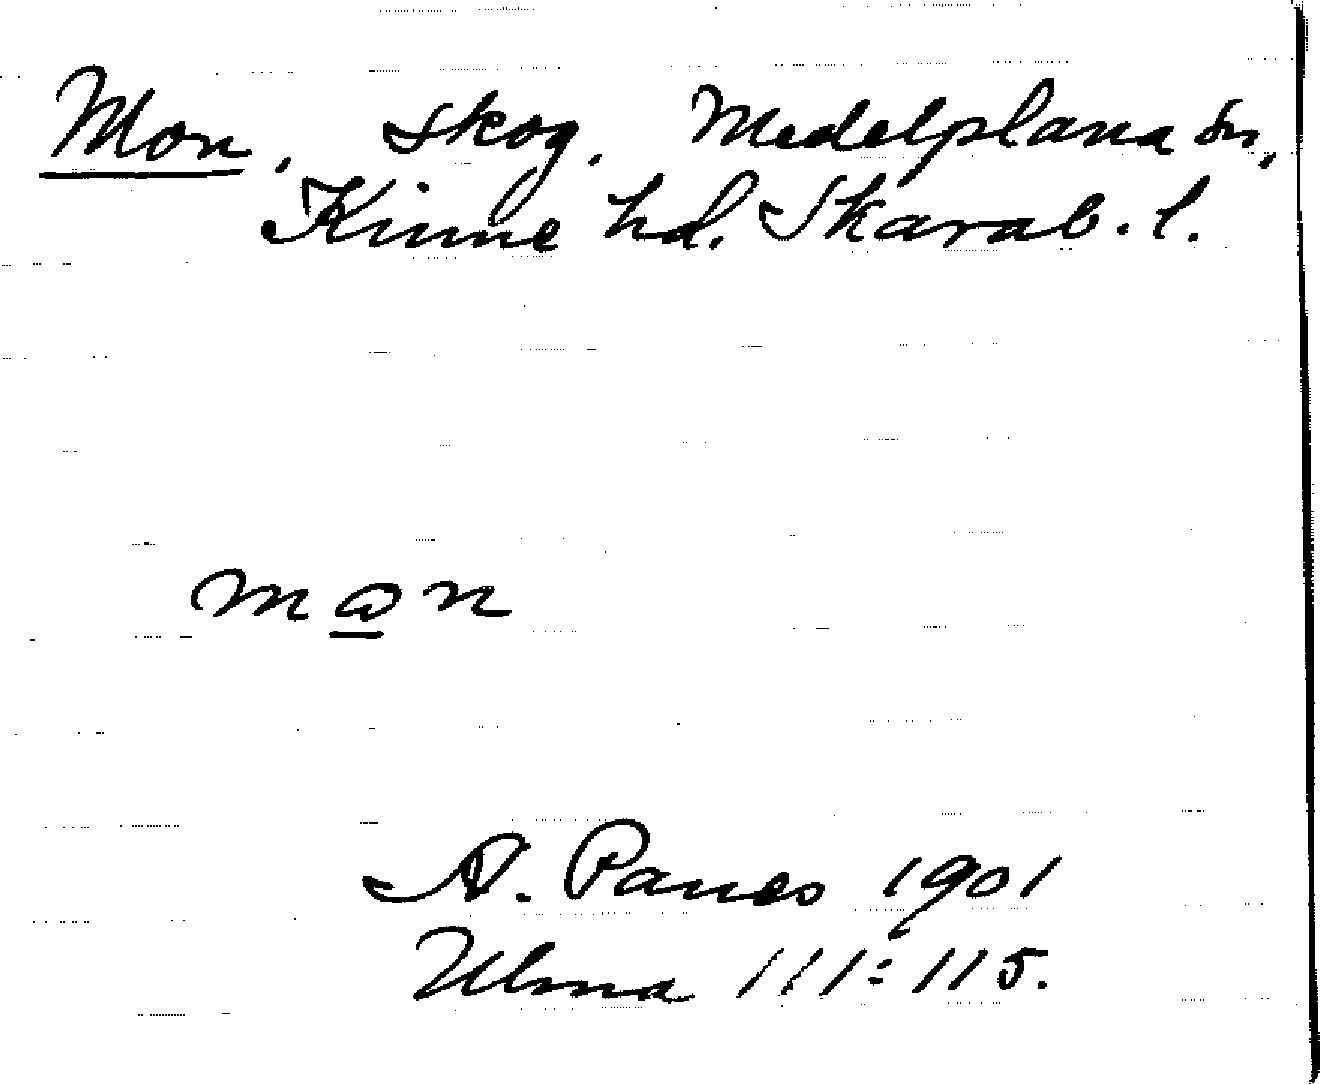 Mon, skog. Medelplana sn,
Kinne hd. Skarab. l.
man
A. Panes 1901
Ulma 111:115.